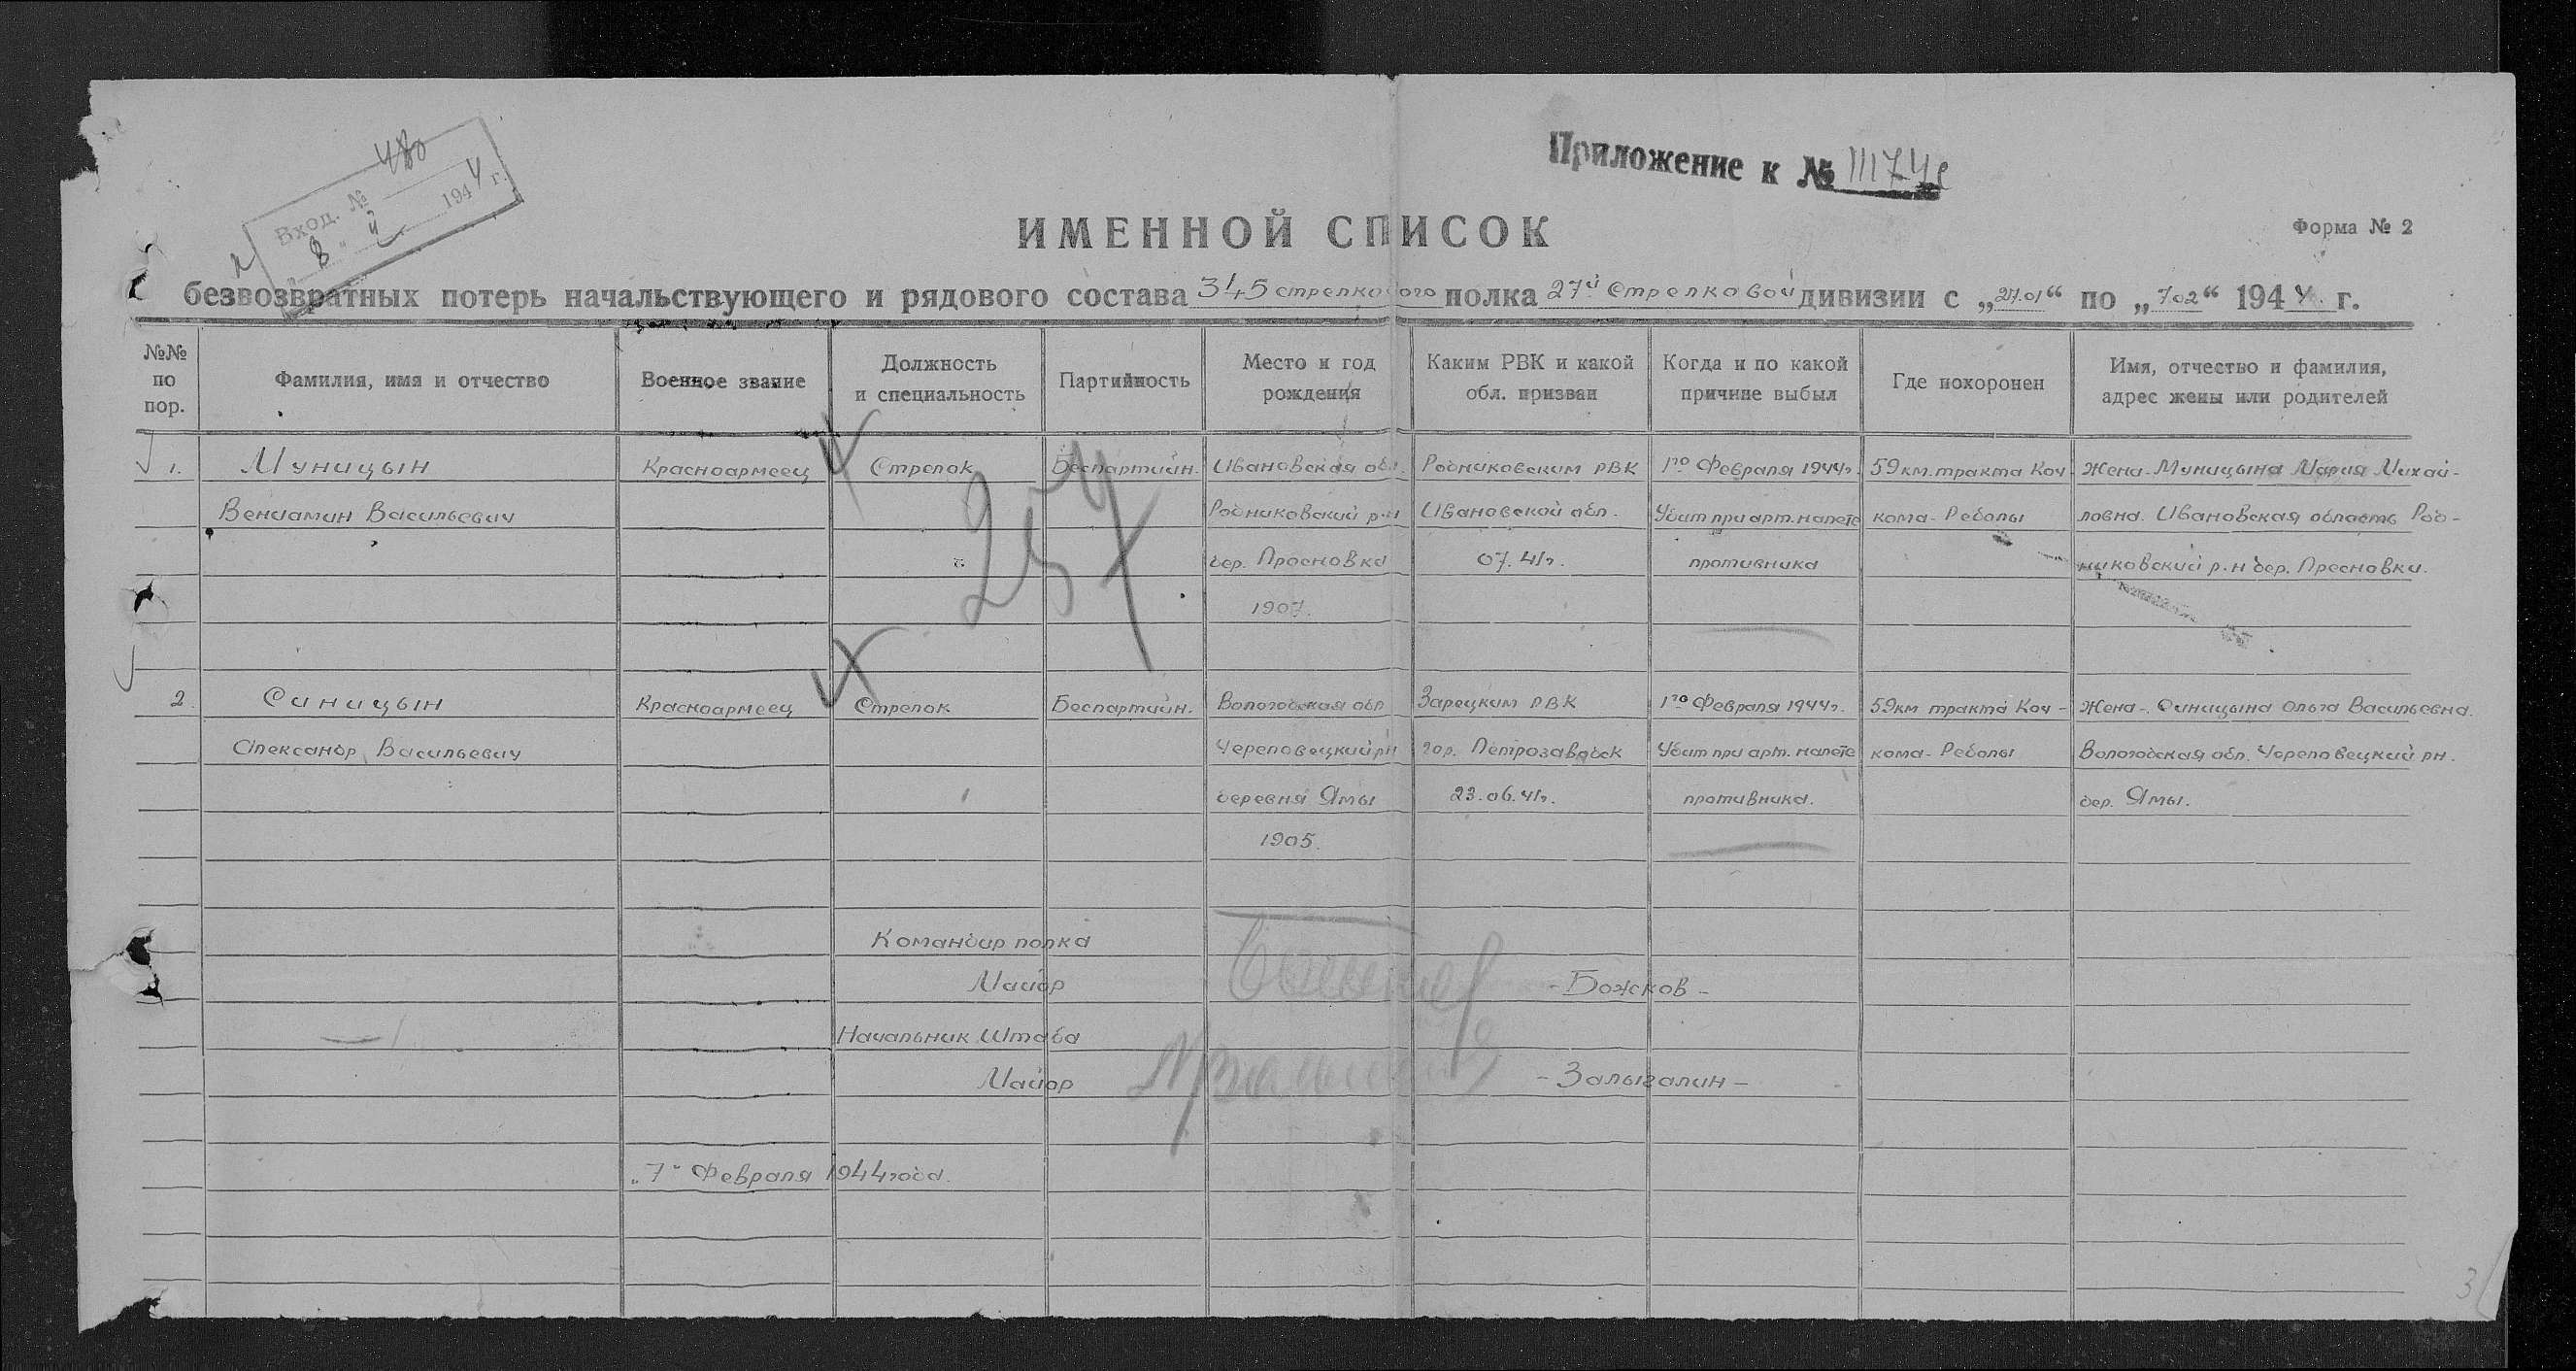 Приложение к № 11174с
Вход. № 480
"8" 194 4 г.
ИМЕННОЙ СПИСОК
Форма № 2
безвозвратных потерь начальствующего и рядового состава 345 стрелкового полка 27й Стрелковой дивизии с „27.01“ по „7.02“ 1944 г.
№№ по пор. Фамилия, имя и отчество Военное звание Должность и специальность Партийность Место и год рождения Каким РВК и какой обл. призван Когда и по какой причине выбыл Где похоронен Имя, отчество и фамилия, адрес жены или родителей
1. Муницын Красноармеец Стрелок Беспартийн. Ивановская обл. Родниковским РВК 1го Февраля 1944г. 59 км. тракта Коч Жена-Муницына Мария Михай-
Вениамин Васильевич Родниковский р-н Ивановской обл. Убит при арт. налете кома-Реболы ловна. Ивановская область Род-
дер. Просновка 07.41г. противника никовский р-н дер. Пресновки.
1907.
257
2. Синицын Красноармеец Стрелок Беспартийн. Вологодская обл Зарецким РВК 1го Февраля 1944г. 59км тракта Коч- Жена-Синицына Ольга Васильевна.
Александр Васильевич Череповецкий рн гор. Петрозаводск Убит при арт. налете кома-Реболы Вологодская обл. Череповецкий рн.
деревня Ямы 23.06.41г. противника. дер. Ямы.
1905.
Командир полка
Майор -Божков-
Начальник Штаба
Майор -Залыгалин-
„7" Февраля 1944 года.
3